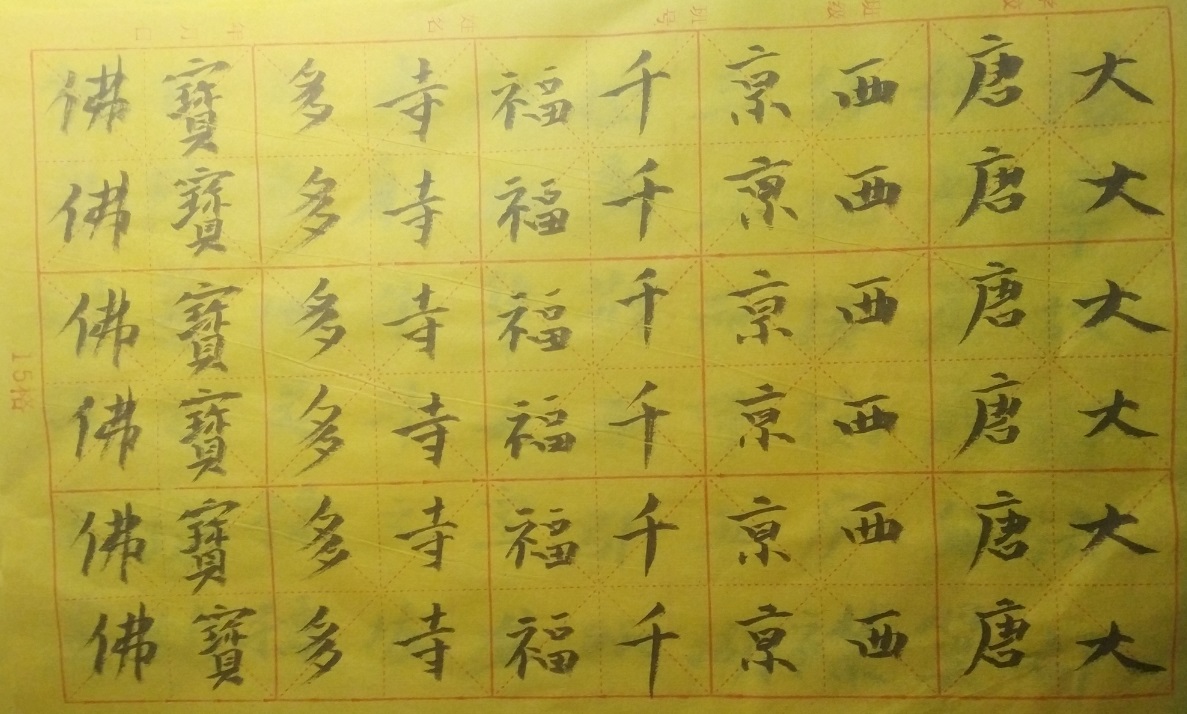 大大大大大大
唐唐唐唐唐唐
西西西西西西
京京京京京京
千千千千千千
福福福福福福
寺寺寺寺寺寺
多多多多多多
寶寶寶寶寶寶
佛佛佛佛佛佛
15格